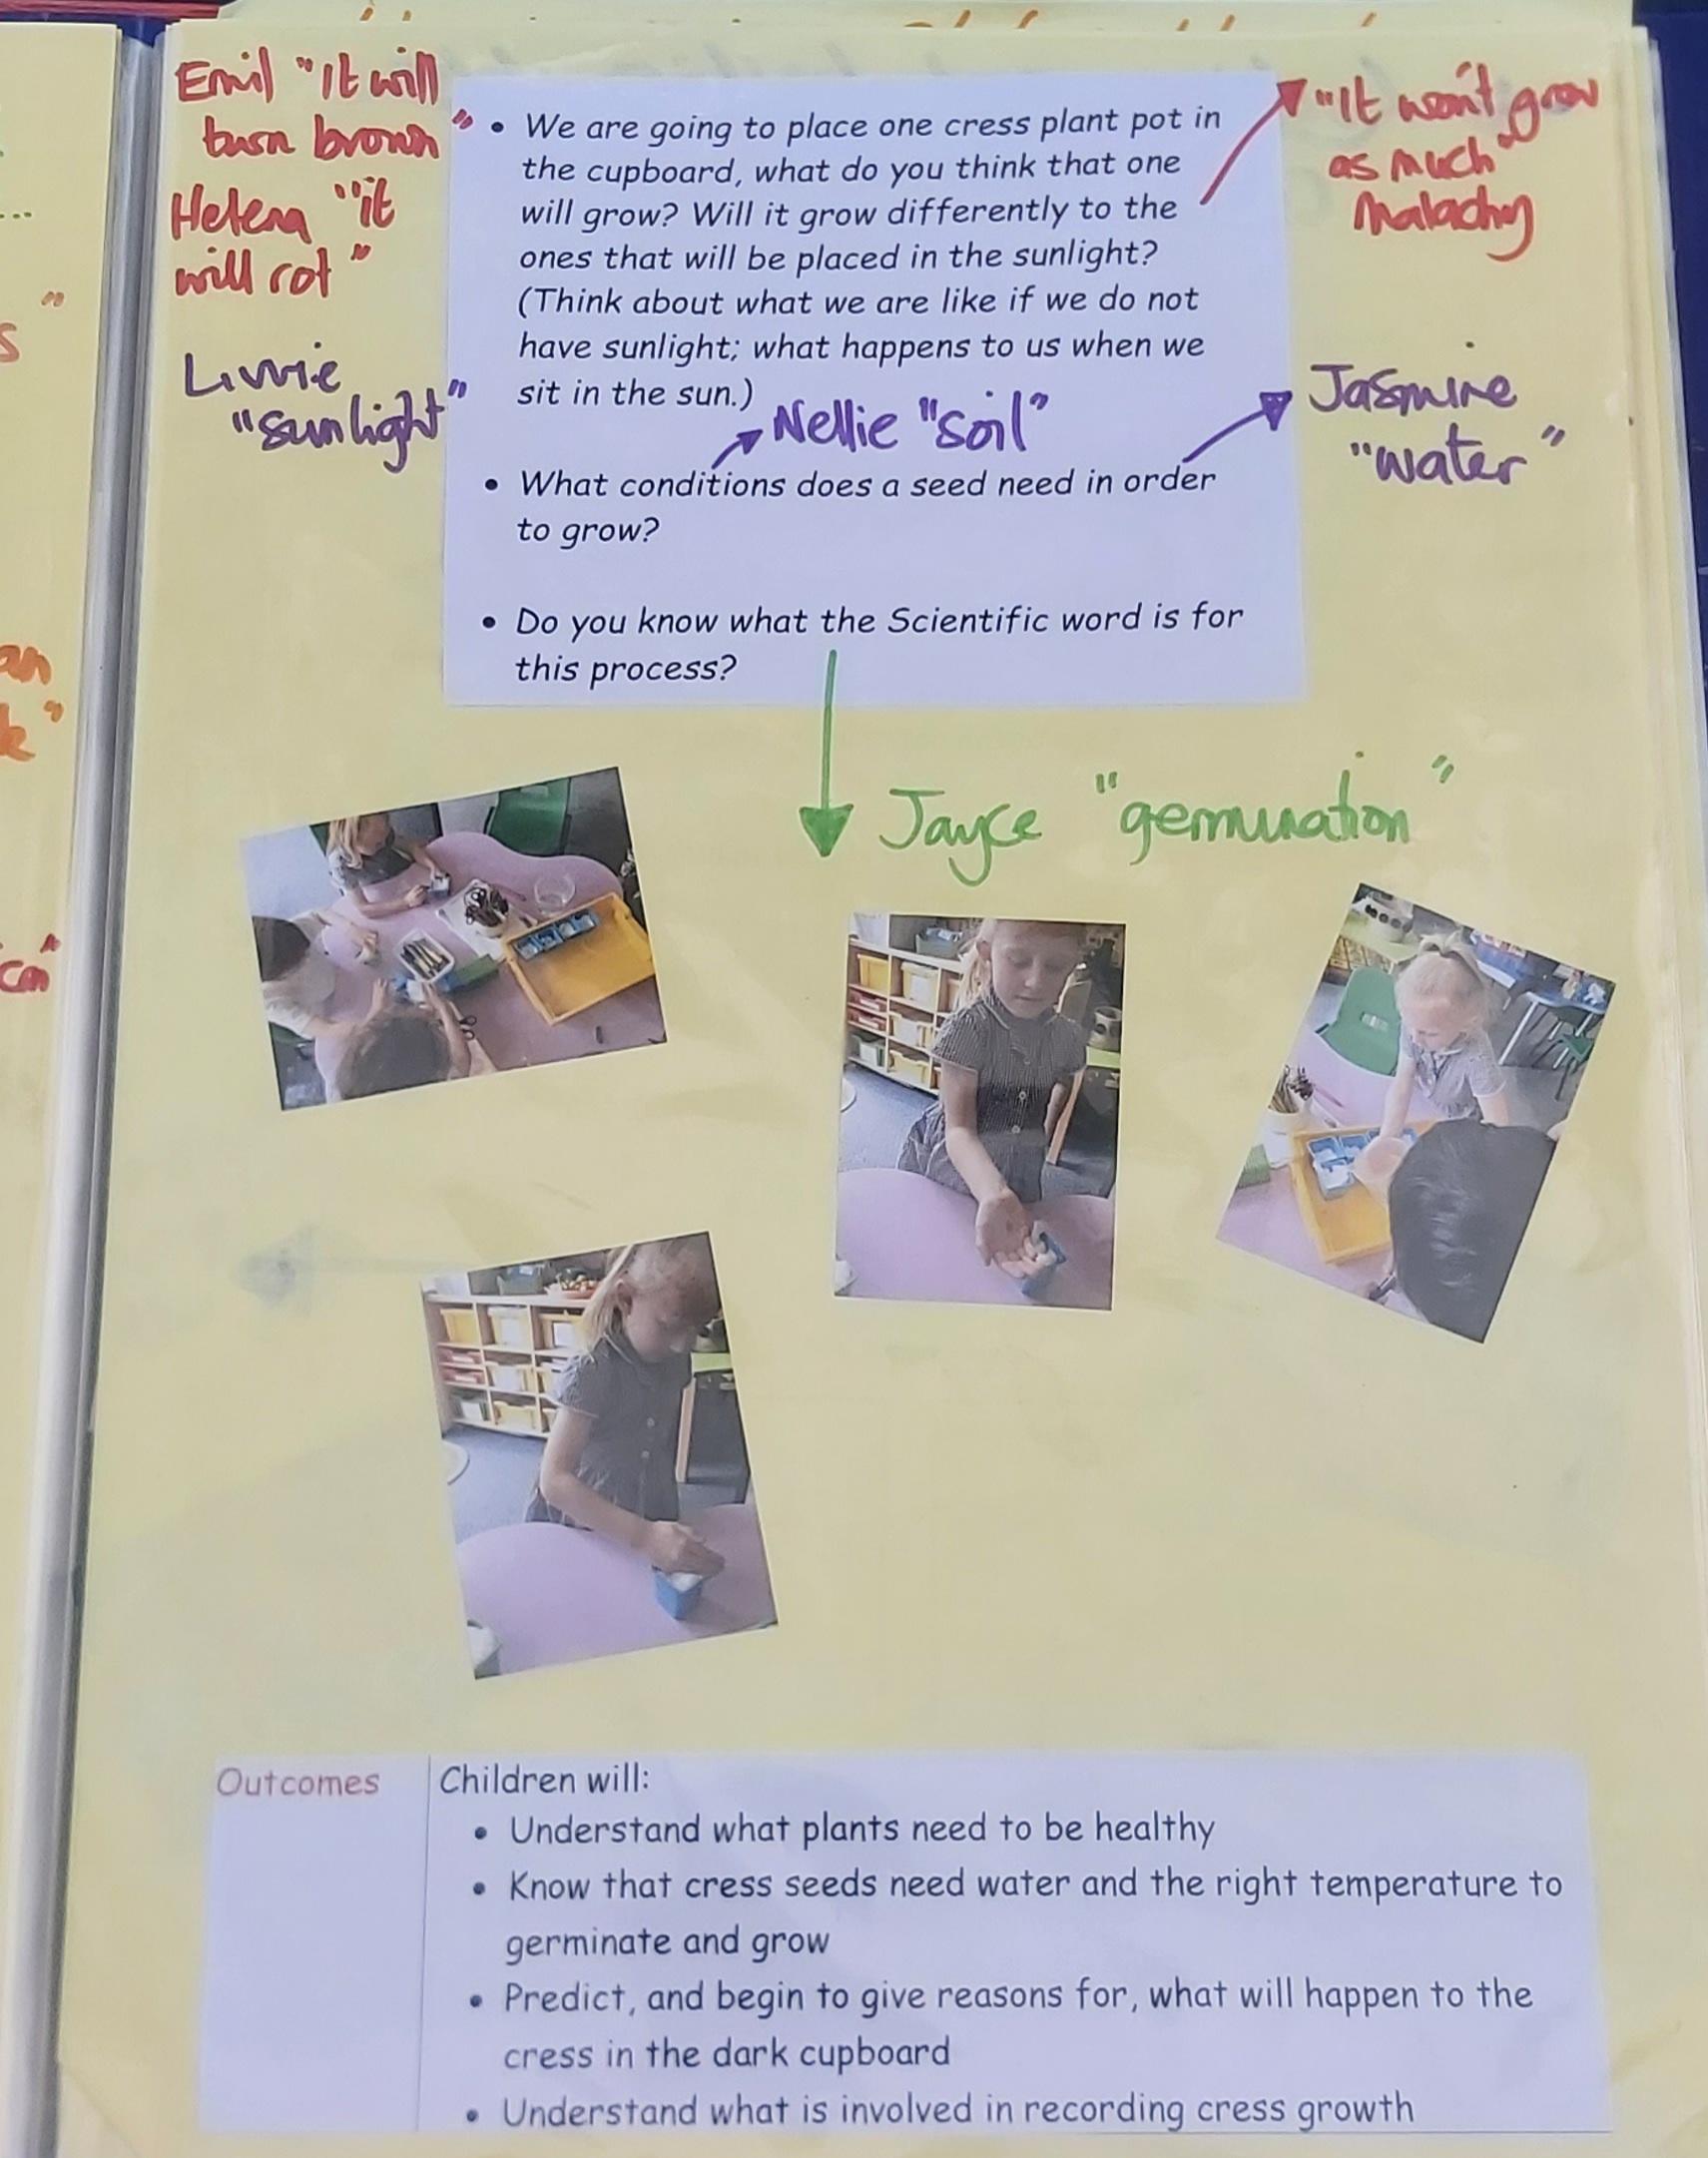 Emil "It will
turn brown"
Helena "it
will rot"
• We are going to place one cress plant pot in
the cupboard, what do you think that one
will grow? Will it grow differently to the
ones that will be placed in the sunlight?
(Think about what we are like if we do not
have sunlight; what happens to us when we
sit in the sun.)
"It won't grow
as much"
Malachy
Livvie
"sunlight"
Nellie "soil"
Jasmine
"water"
• What conditions does a seed need in order
to grow?
• Do you know what the Scientific word is for
this process?
Jayce "germination"
Outcomes
Children will:
• Understand what plants need to be healthy
• Know that cress seeds need water and the right temperature to
germinate and grow
• Predict, and begin to give reasons for, what will happen to the
cress in the dark cupboard
• Understand what is involved in recording cress growth